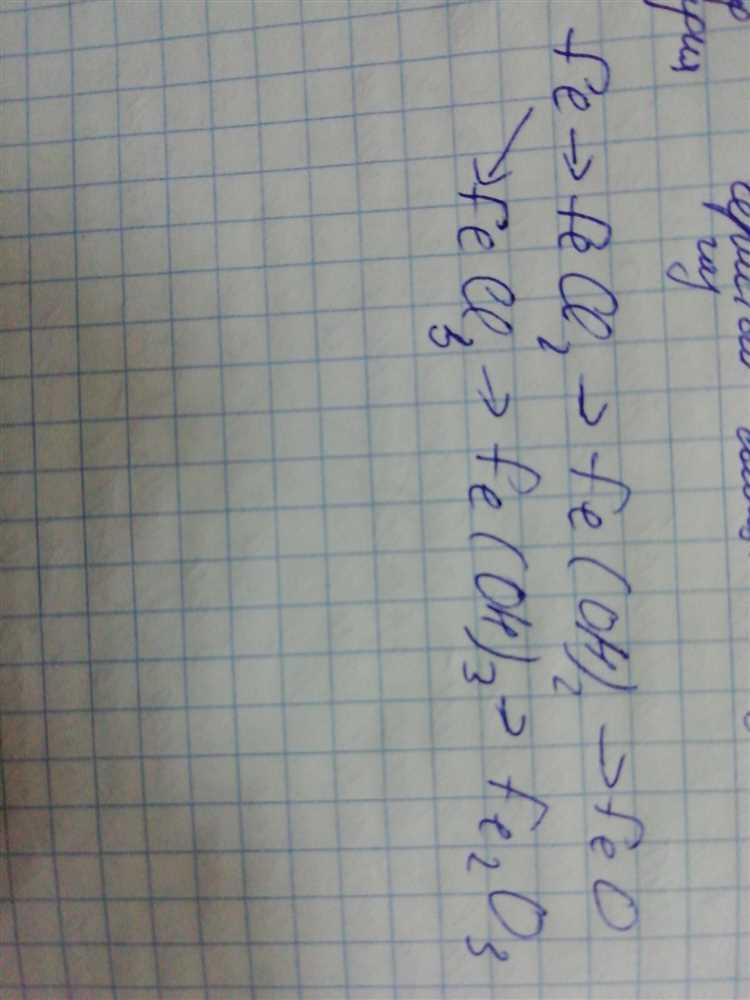 Fe → FeCl₂ → Fe(OH)₂ → FeO
↘ FeCl₃ → Fe(OH)₃ → Fe₂O₃